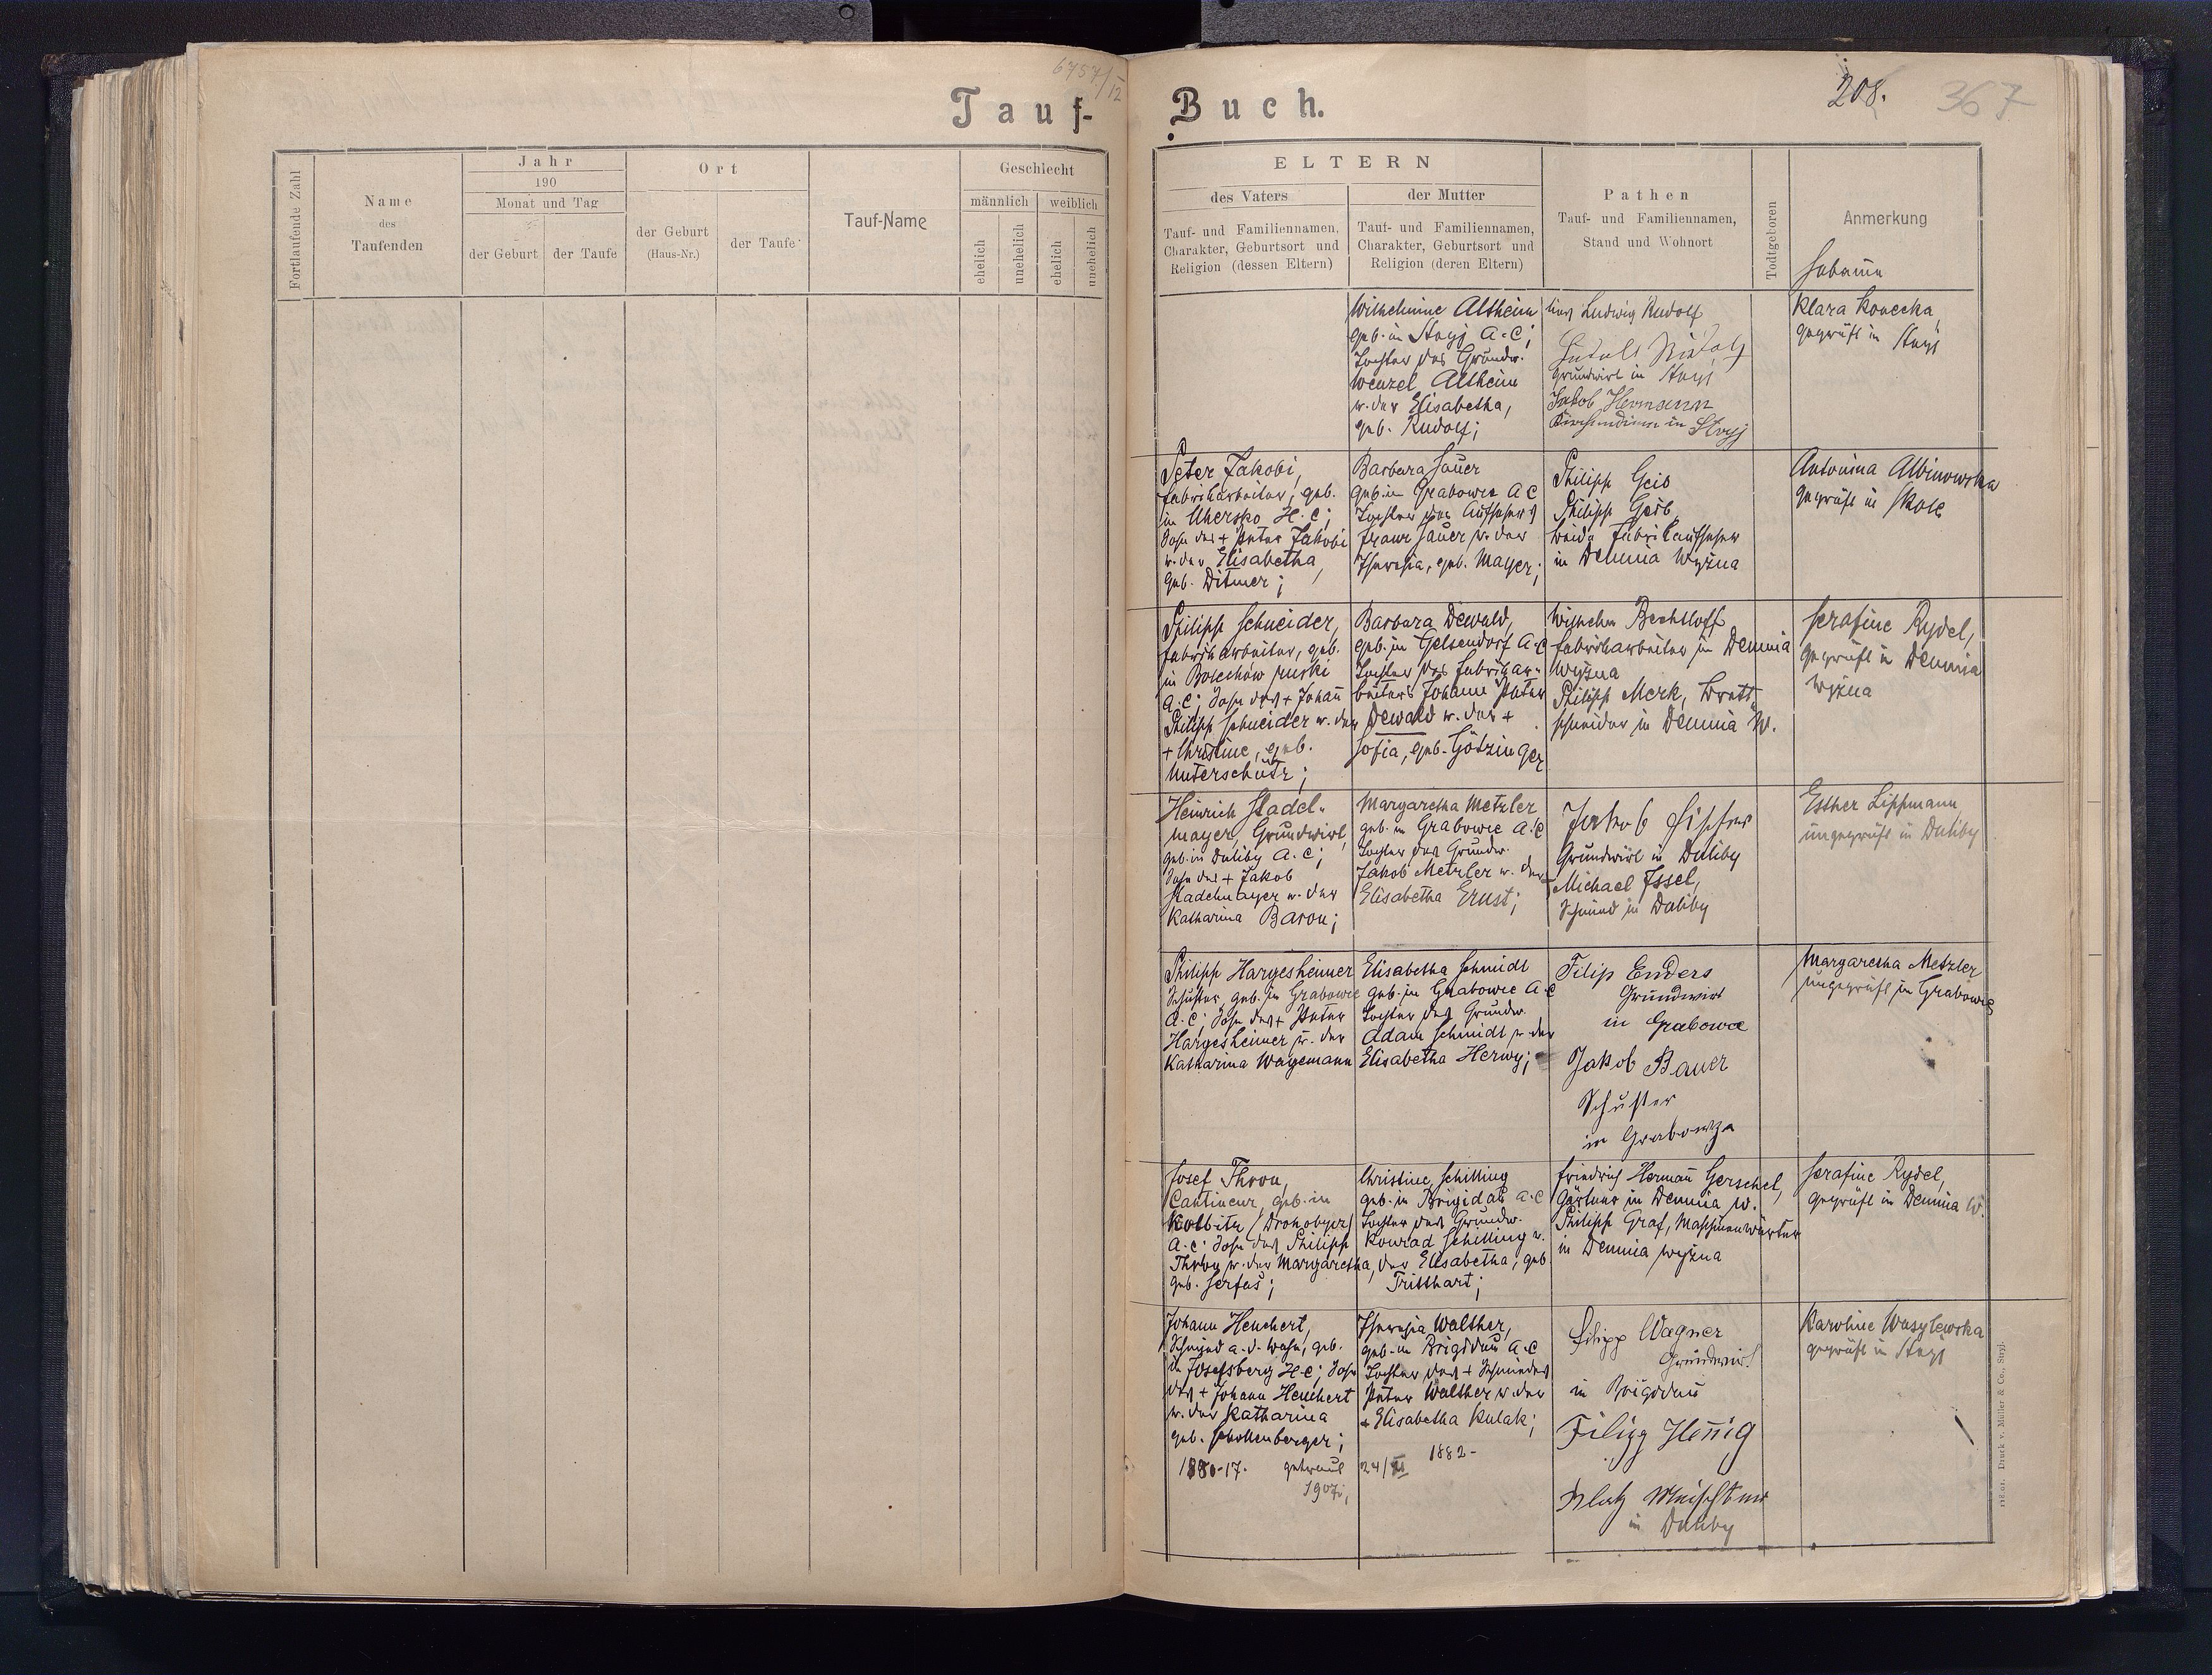 6757/12
Tauf-
Fortlaufende Zahl
Name
des
Taufenden
Jahr
190
Monat und Tag
der Geburt
der Taufe
Ort
der Geburt
(Haus-Nr.)
der Taufe
Tauf-Name
Geschlecht
männlich
weiblich
ehelich
unehelich
ehelich
unehelich
Buch.
208.
367
ELTERN
des Vaters
Tauf- und Familiennamen,
Charakter, Geburtsort und
Religion (dessen Eltern)
der Mutter
Tauf- und Familiennamen,
Charakter, Geburtsort und
Religion (deren Eltern)
Pathen
Tauf- und Familiennamen,
Stand und Wohnort
Todtgeboren
Anmerkung
Hebamme
Wilhelmine Altheim
geb. in Stryj A.C;
Tochter des Grundw.
Wenzel Altheim
u. der Elisabetha,
geb. Rudolf;
Ludwig Rudolf
Grundwirt in Stryj
Jakob Hermann
Kirchendiener in Stryj
Klara Konecka,
geprüft in Stryj
Peter Jakobi,
Fabriksarbeiter, geb.
in Uhersko H.C;
Sohn des + Peter Jakobi
u. der Elisabetha,
geb. Ditmer;
Barbara Sauer
geb. in Grabowce A C
Tochter des Aufsehers
Franz Sauer u. der
Theresia, geb. Mayer;
Philipp Geib
Philipp Geib,
beide Fabriksaufseher
in Demnia Wyżna
Antonina Albinowska
geprüft in Skole
Philipp Schneider,
Fabriksarbeiter, geb.
in Bolechów ruski
A.C; Sohn des + Johann
Philipp Schneider u. der
+ Christine, geb.
Unterschütz;
Barbara Dewald,
geb. in Gelsendorf A.C
Tochter des Fabriksar-
beiters Johann Peter
Dewald u. der +
Sofia, geb. Götzinger
Wilhelm Bechtloff
Fabriksarbeiter in Demnia
Wyżna
Philipp Merk, Brett-
schneider in Demnia W.
Serafine Rydel,
geprüft in Demnia
Wyżna
Heinrich Stadel-
mayer, Grundwirt,
geb. in Duliby A.C;
Sohn des + Jakob
Stadelmayer u. der
Katharina Baron;
Margaretha Metzler
geb. in Grabowce A.C
Tochter des Grundw.
Jakob Metzler u. der
Elisabetha Ernst;
Jakob Fischer
Grundwirt in Duliby
Michael Issel,
Schmied in Duliby
Esther Lippmann
ungeprüft in Duliby
Philipp Hargesheimer
Schuster, geb. in Grabowce
A.C; Sohn des + Peter
Hargesheimer u. der
Katharina Wagemann
Elisabetha Schmidt
geb. in Grabowce A.C
Tochter des Grundw.
Adam Schmidt u. der
Elisabetha Herwy;
Filip Enders
Grundwirt
in Grabowce
Jakob Bauer
Schuster
in Grabowza
Margaretha Metzler
ungeprüft in Grabowce
Josef Thron,
Cantineur, geb. in
Kolbitz (Drohobycz)
A.C; Sohn des Philipp
Thron u. der Margaretha,
geb. Serfas;
Christine Schilling
geb. in Brigidau A.C
Tochter des Grundw.
Konrad Schilling u.
der Elisabetha, geb.
Tritthart;
Friedrich Hermann Gerschel,
Gärtner in Demnia W.
Philipp Graf, Maschinenwärter
in Demnia Wyżna
Serafine Rydel,
geprüft in Demnia W.
Johann Heuchert,
Schmied a. d. Bahn, geb.
in Josefsberg H.C; Sohn
des + Johann Heuchert
u. der Katharina
geb. Schollenberger;
1880-17. getraut
1907;
Theresia Walther,
geb. in Brigidau A.C
Tochter des + Schmiedes
Peter Walther u. der
+ Elisabetha Kulak;
1882-
24/XI
Filipp Wagner
Grundwirt
in Brigidau
Filipp Hennig
Platz Meister
in Duliby
Karoline Wasylewska
geprüft in Stryj
Druck v. Müller & Co., Stryj.